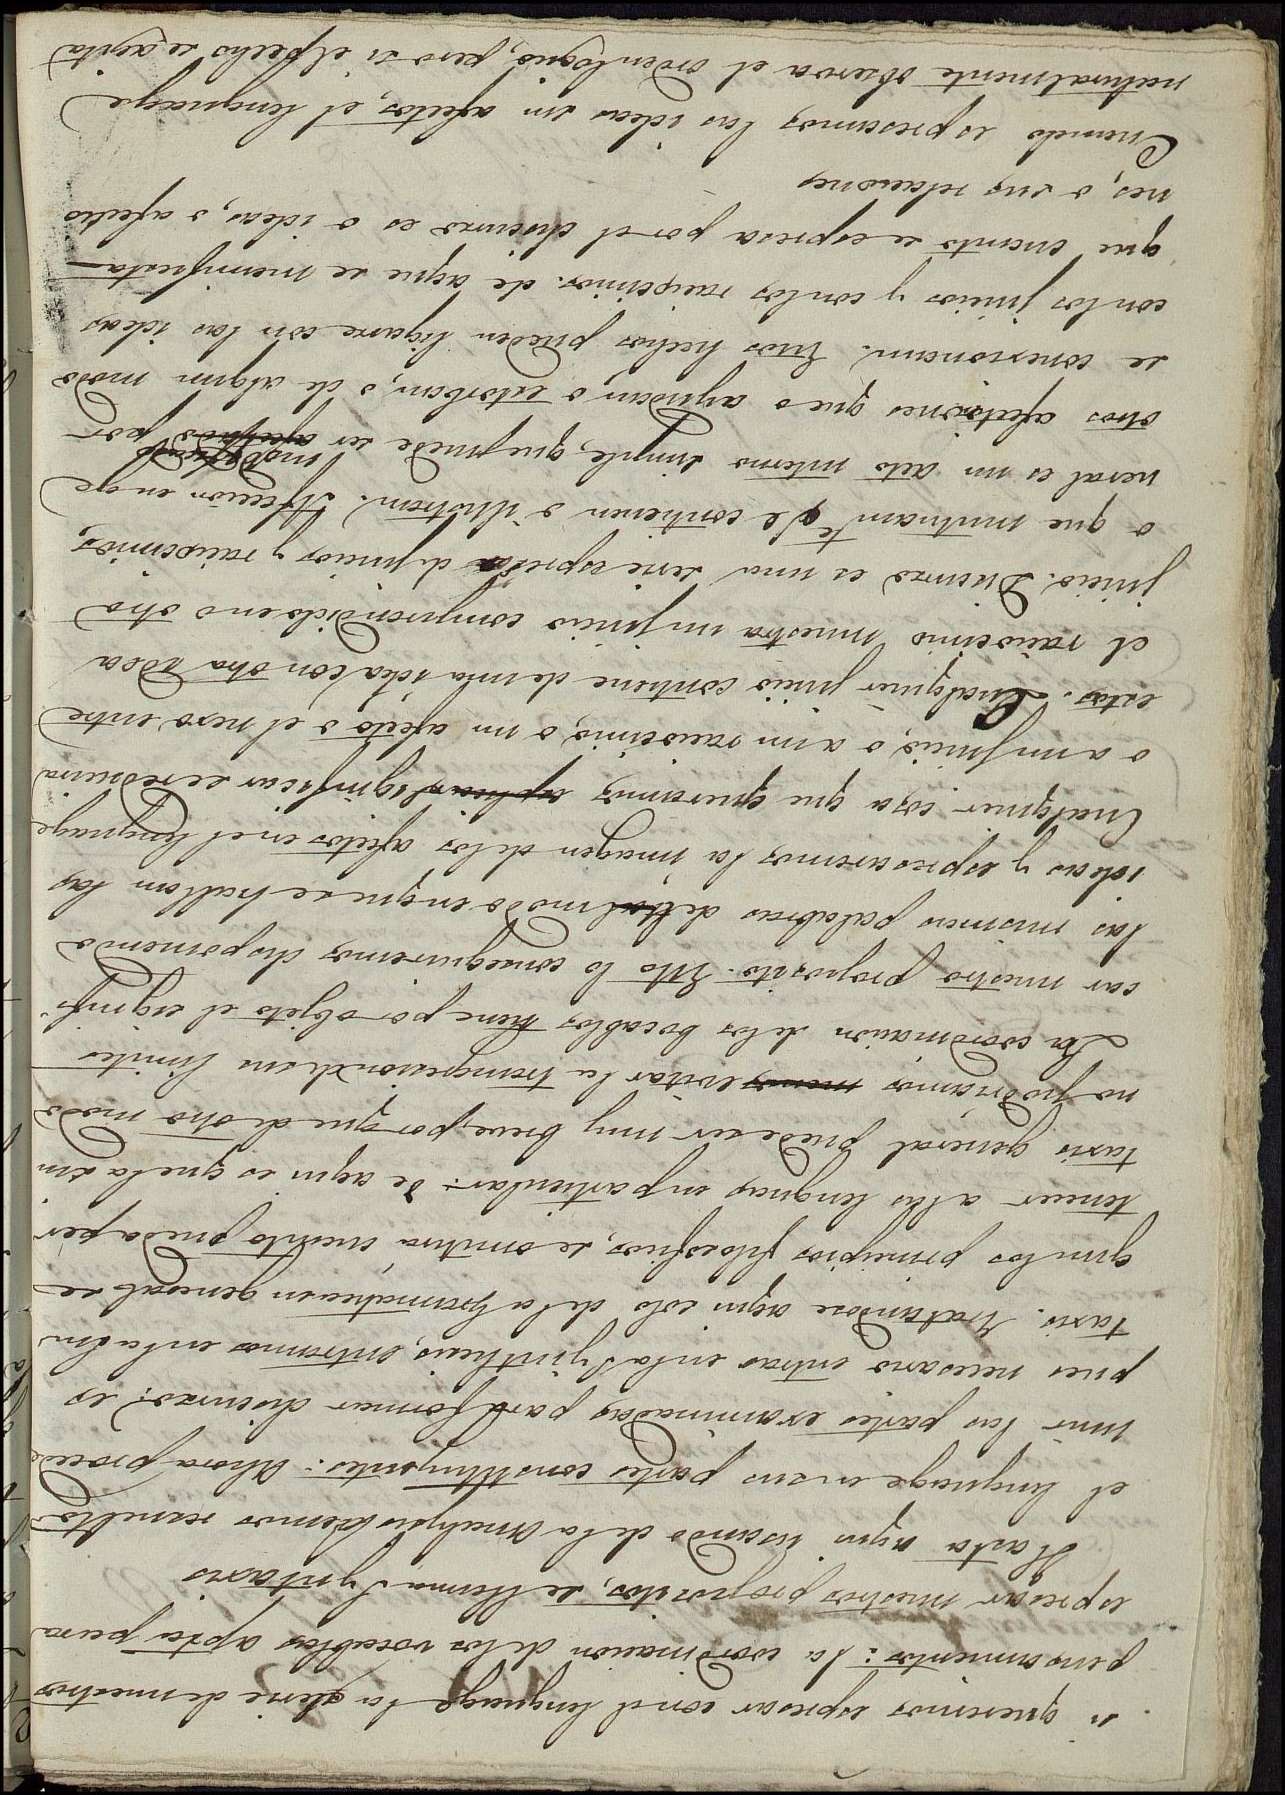 si queremos espresar con el lenguage la serie de nuestros
pensamientos: la coordinacion de los vocablos apta para
espresar nuestros propositos, se llama Syntaxis
Hasta aqui usando de la Analysis hemos resuelto
el lenguage en sus partes constituyentes: Ahora procede
unir las partes examinadas para formar discurso: es
pues necesario entrar en la Synthesis, entramos en la Sin
taxis. Tratandose aqui solo de la Grammatica en general se
gun los principios filosoficos, se omitira cuanto pueda per
tenecer a las lenguas en particular: de aqui es que la sin
taxis general puede ser muy breve, por que de otro modo
no podriamos evitar la transgresion de sus limites
La coordinacion de los bocablos tiene por objeto el signifi
car nuestro proposito. Esto lo conseguiremos disponiendo
las mismas palabras del modo en que se hallan las
ideas y espresaremos la imagen de los afectos en el lenguage
Cualquier cosa que queramos significar se reducira
o a un juicio, o a un raciocinio, o un afecto o el nexo entre
estos. Cualquier juicio contiene de una idea con otra idea
el raciocinio muestra un juicio comprendido en o otro
juicio. Discurso es una serie espresa de juicios y raciocinios,
o que mutuamte se contienen o ilustran. Afeccion en ge
neral es un acto interno simple, que puede ser modificado por
otras afecciones que o ayudan o estorban, o de algun modo
se conexionan. Estos hechos pueden ligarse con las ideas
con los juicios y con los raciocinios. de aqui se manifiesta
que cuanto se espresa por el discurso es o ideas, o afectio
nes, o sus relaciones
Cuando espresamos las ideas sin afectos, el lenguage
naturalmente observa el orden logico, pero si el pecho se agita